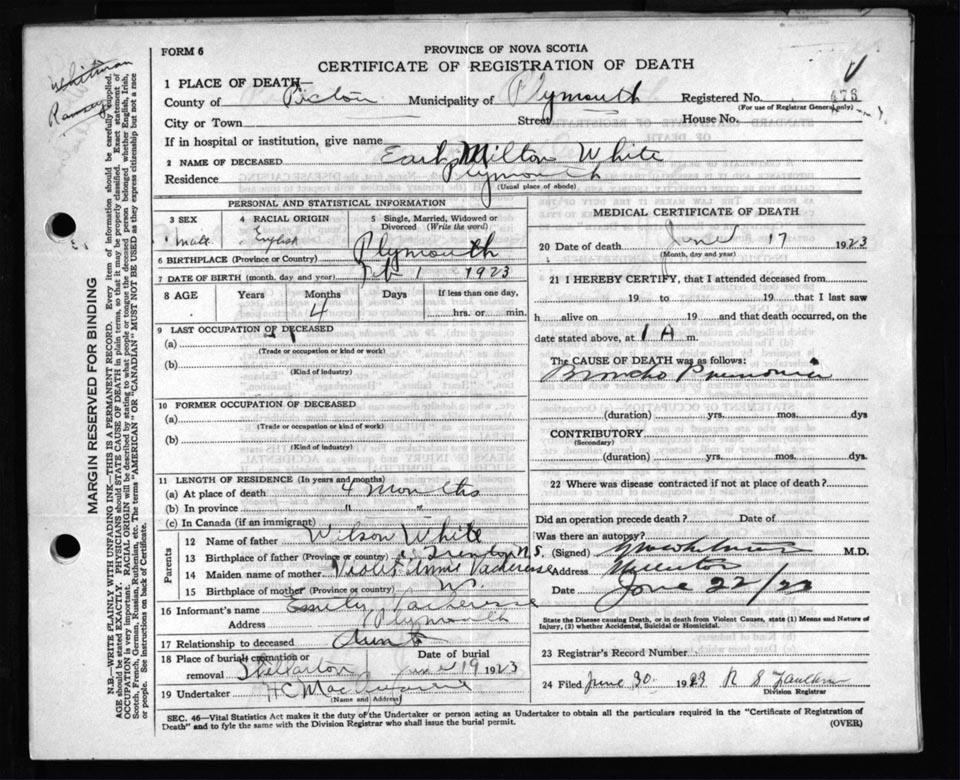 FORM 6
PROVINCE OF NOVA SCOTIA
CERTIFICATE OF REGISTRATION OF DEATH
1 PLACE OF DEATH—
County of Pictou Municipality of Plymouth Registered No. 473
(For use of Registrar General only)
City or Town Street House No.
If in hospital or institution, give name
2 NAME OF DECEASED Earl Milton White
Residence Plymouth
(Usual place of abode)
PERSONAL AND STATISTICAL INFORMATION
3 SEX male
4 RACIAL ORIGIN English
5 Single, Married, Widowed or Divorced (Write the word)
6 BIRTHPLACE (Province or Country) Plymouth
7 DATE OF BIRTH (month, day and year) 1 1923
8 AGE Years Months 4 Days If less than one day, hrs. or min.
9 LAST OCCUPATION OF DECEASED
(a)
(Trade or occupation or kind or work)
(b)
(Kind of industry)
10 FORMER OCCUPATION OF DECEASED
(a)
(Trade or occupation or kind of work)
(b)
(Kind of industry)
11 LENGTH OF RESIDENCE (In years and months)
(a) At place of death 4 months
(b) In province " "
(c) In Canada (if an immigrant)
Parents
12 Name of father Wilson White
13 Birthplace of father (Province or country) Trenton N.S.
14 Maiden name of mother Violet Annie
15 Birthplace of mother (Province or country) N.S.
16 Informant's name Emily
Address Plymouth
17 Relationship to deceased Aunt
18 Place of burial, cremation or removal Stellarton Date of burial June 19 1923
19 Undertaker H C
(Name and Address)
MEDICAL CERTIFICATE OF DEATH
20 Date of death June 17 1923
(Month, day and year)
21 I HEREBY CERTIFY, that I attended deceased from
19 to 19 that I last saw
h alive on 19 and that death occurred, on
date stated above, at 1 A m.
The CAUSE OF DEATH was as follows:
Broncho Pneumonia
(duration) yrs. mos. dys
CONTRIBUTORY
(Secondary)
(duration) yrs. mos. dys
22 Where was disease contracted if not at place of death?
Did an operation precede death? Date of
Was there an autopsy?
(Signed) M.D.
Address
Date June 22/23
State the Disease causing Death, or in death from Violent Causes, state (1) Means and Nature of Injury, (2) whether Accidental, Suicidal or Homicidal.
23 Registrar's Record Number
24 Filed June 30 1923 R S
Division Registrar
SEC. 46—Vital Statistics Act makes it the duty of the Undertaker or person acting as Undertaker to obtain all the particulars required in the "Certificate of Registration of
Death" and to fyle the same with the Division Registrar who shall issue the burial permit.
(OVER)
Whitman
Ramsey
MARGIN RESERVED FOR BINDING
N.B.—WRITE PLAINLY WITH UNFADING INK—THIS IS A PERMANENT RECORD. Every item of information should be carefully supplied.
AGE should be stated EXACTLY. PHYSICIANS should STATE CAUSE OF DEATH in plain terms, so that it may be properly classified. Exact statement of
OCCUPATION is very important. RACIAL ORIGIN will be described by stating to what people or tongue the deceased person belonged whether English, Irish,
Scotch, French, German, Russian, Ruthenian, etc. The terms "AMERICAN" OR "CANADIAN" MUST NOT BE USED as they express citizenship but not a race
or people. See instructions on back of Certificate.